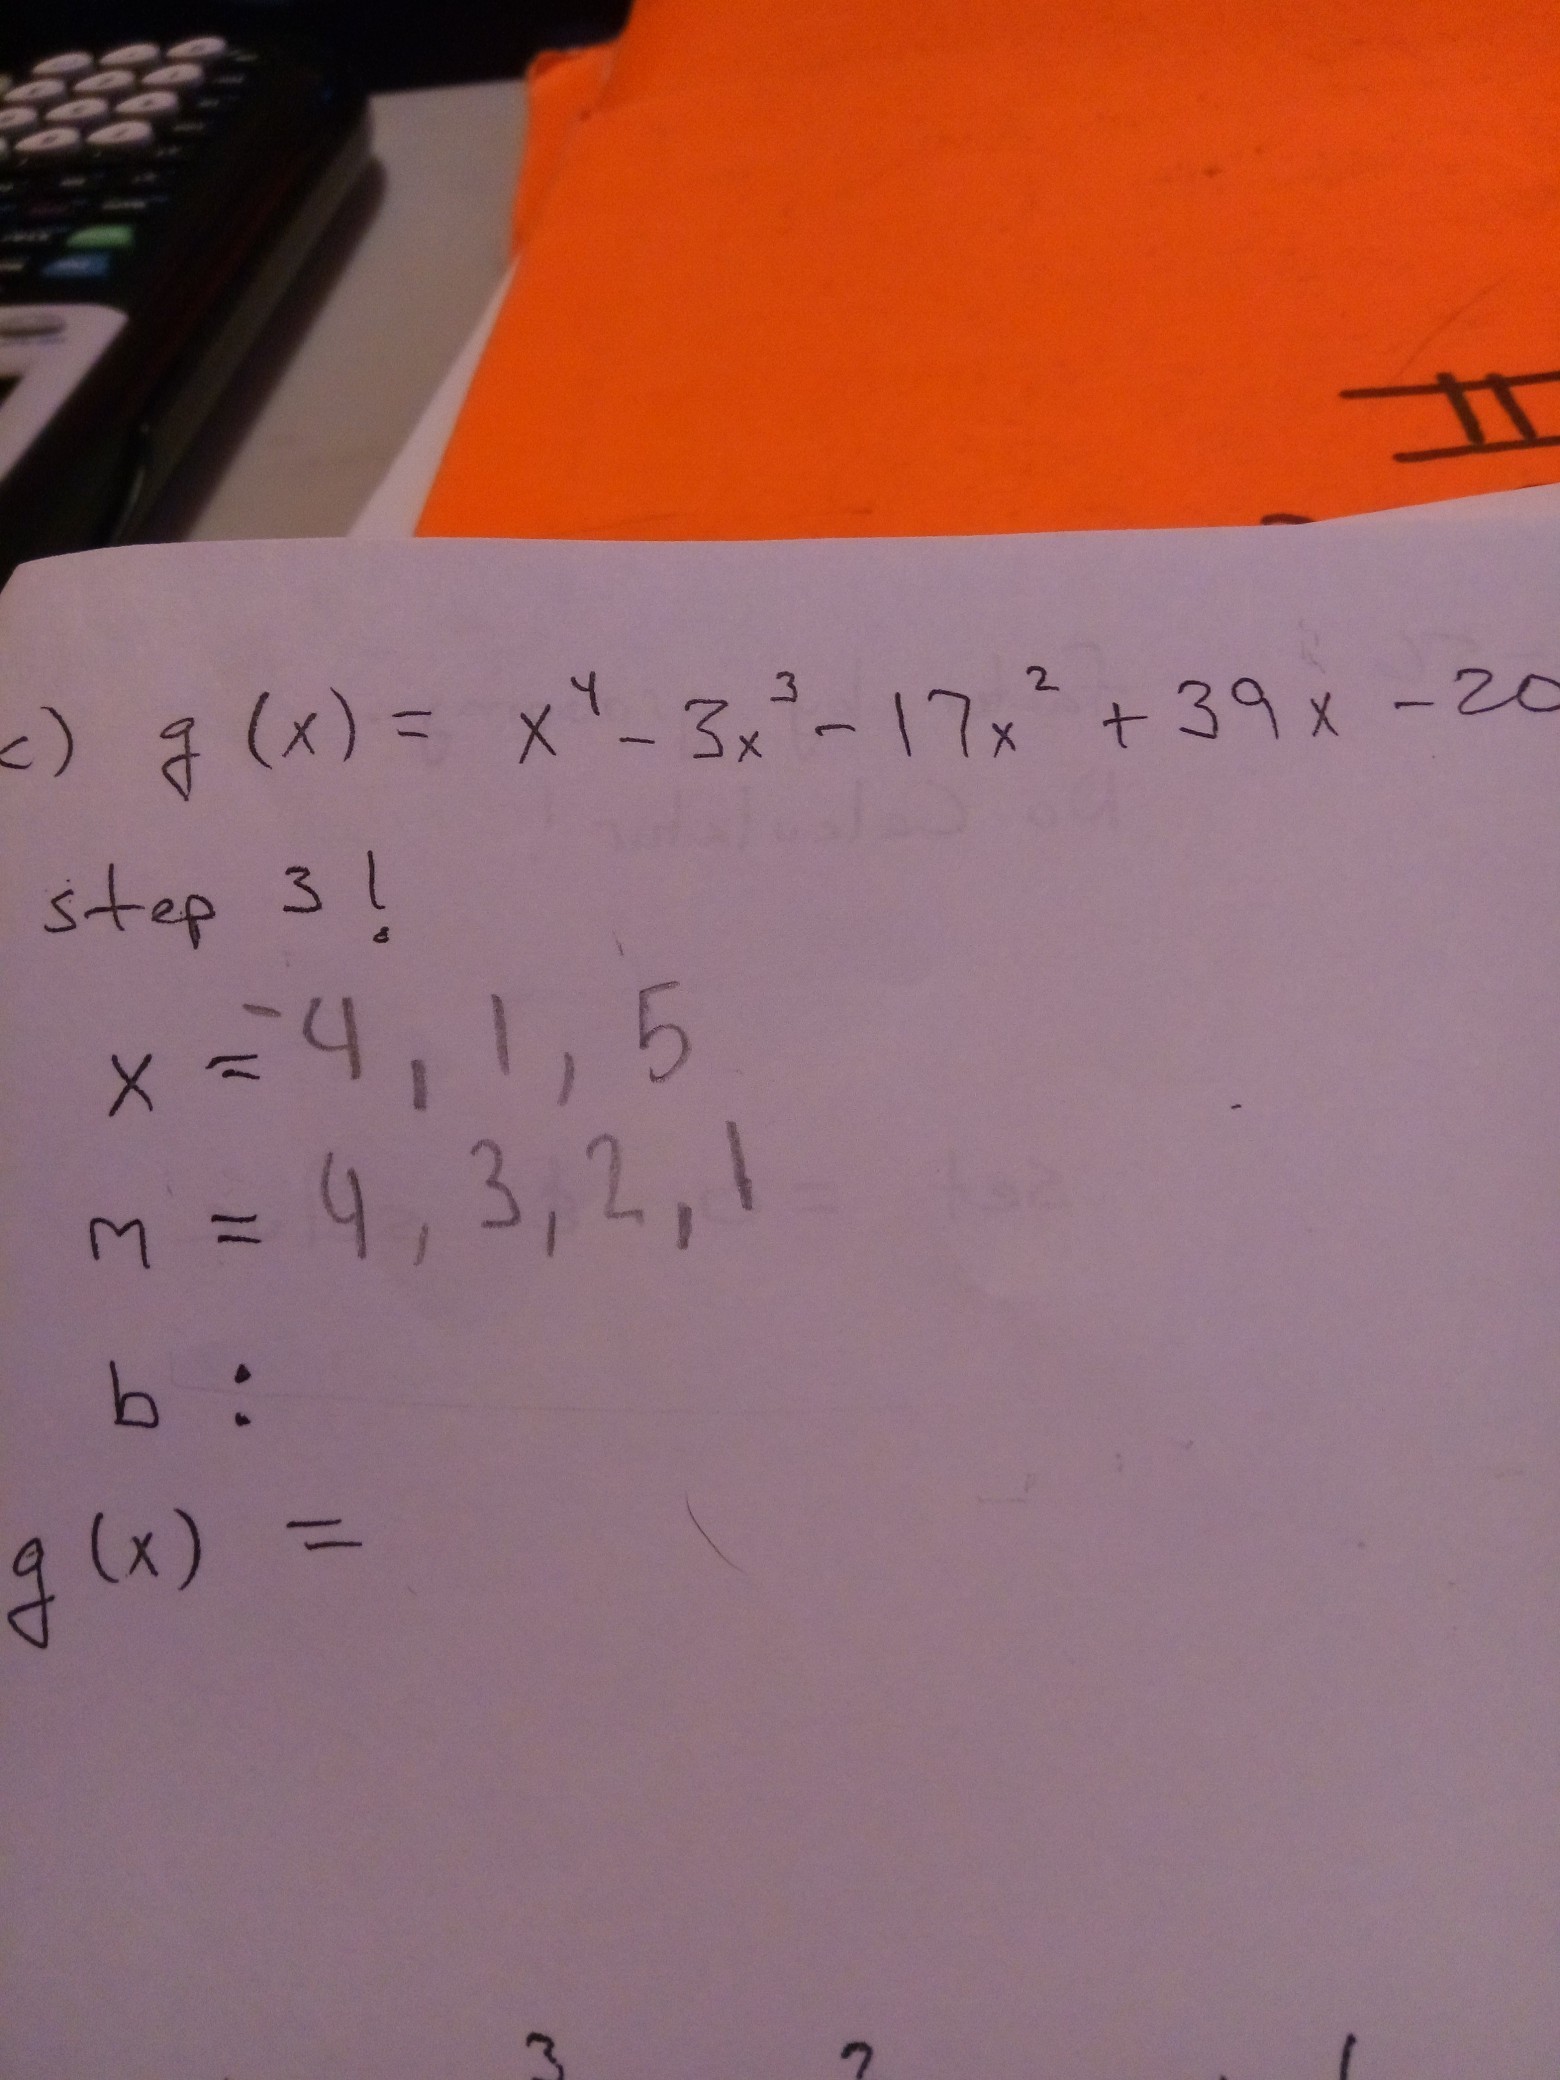 c) g(x) = x⁴ - 3x³ - 17x² + 39x - 20
step 3!
x = -4, 1, 5
m = 4, 3, 2, 1
b :
g(x) =